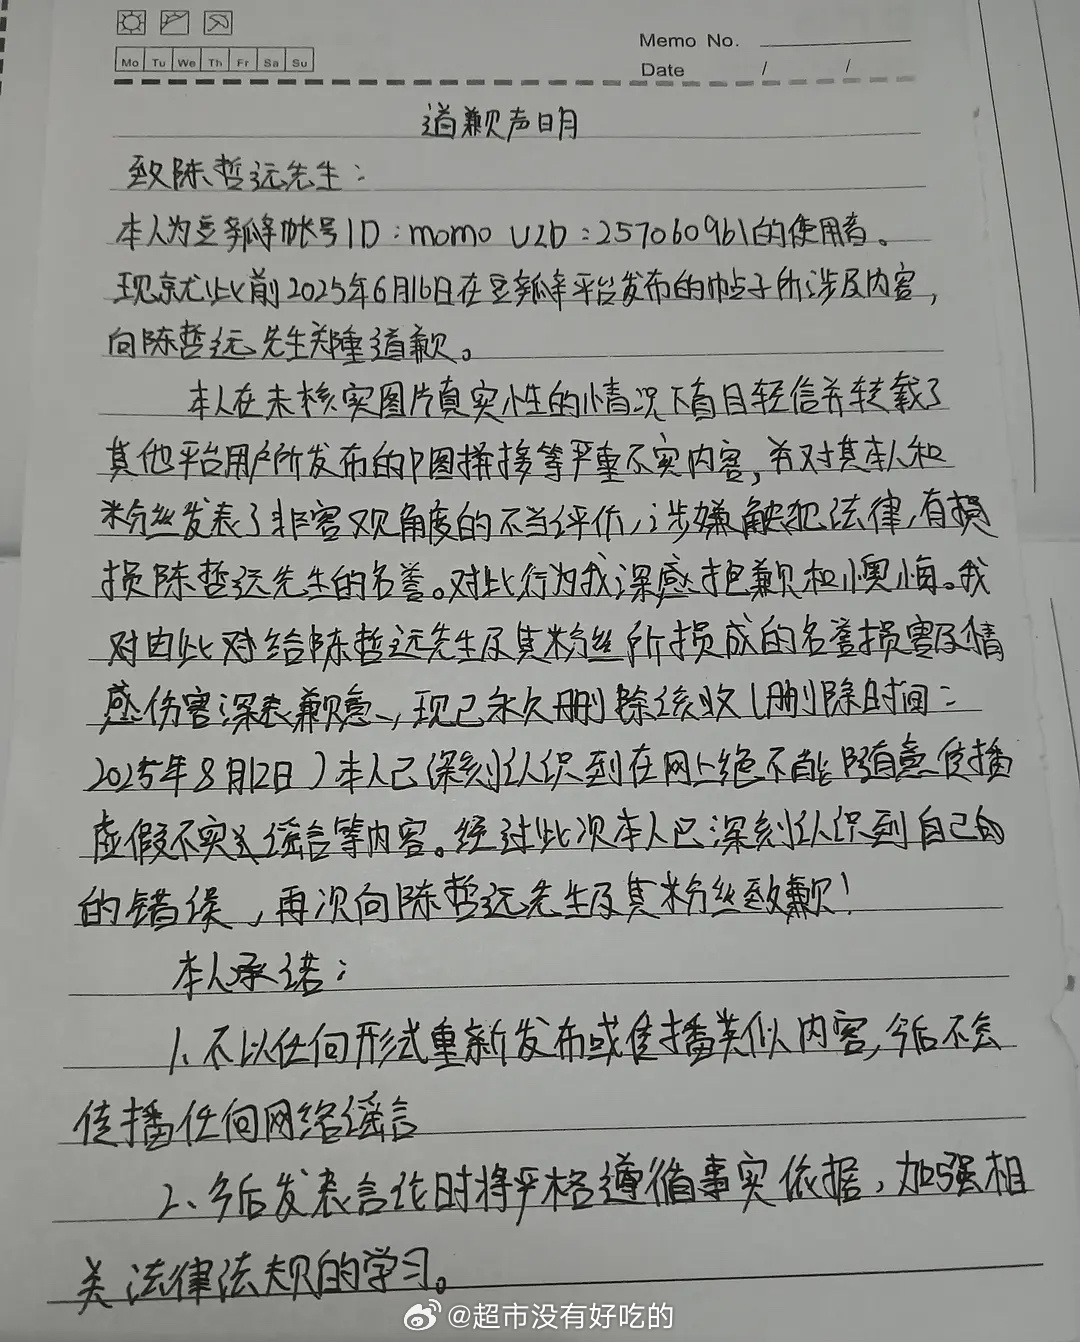 Memo No.
Mo Tu We Th Fr Sa Su
Date / /
道歉声明
致陈哲远先生：
本人为豆瓣帐号ID：momo UID：257060961的使用者。
现就此前2025年6月16日在豆瓣平台发布的帖子所涉及内容，
向陈哲远先生郑重道歉。
本人在未核实图片真实性的情况下盲目轻信并转载了
其他平台用户所发布的P图拼接等严重不实内容，并对其本人和
粉丝发表了非客观角度的不当评价，涉嫌触犯法律，有损
损陈哲远先生的名誉。对此行为我深感抱歉和懊悔。我
对由此对给陈哲远先生及其粉丝所损成的名誉损害及情
感伤害深表歉意，现已永久删除该收（删除时间：
2025年8月12日）本人已深刻认识到在网上绝不能随意传播
虚假不实谣言等内容。经过此次本人已深刻认识到自己的
的错误，再次向陈哲远先生及其粉丝致歉！
本人承诺：
1、不以任何形式重新发布或传播类似内容，今后不会
传播任何网络谣言
2、今后发表言论时将严格遵循事实依据，加强相
关法律法规的学习。
@超市没有好吃的